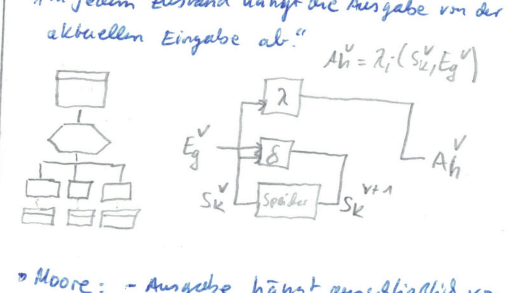 "In jedem Zustand hängt die Ausgabe von der
aktuellen Eingabe ab."
Ah^v = λi·(Sk^v, Eg^v)
λ
Eg^v
δ
Ah^v
Sk^v
Speicher
Sk^v+1
Moore: - Ausgabe hängt ausschließlich von